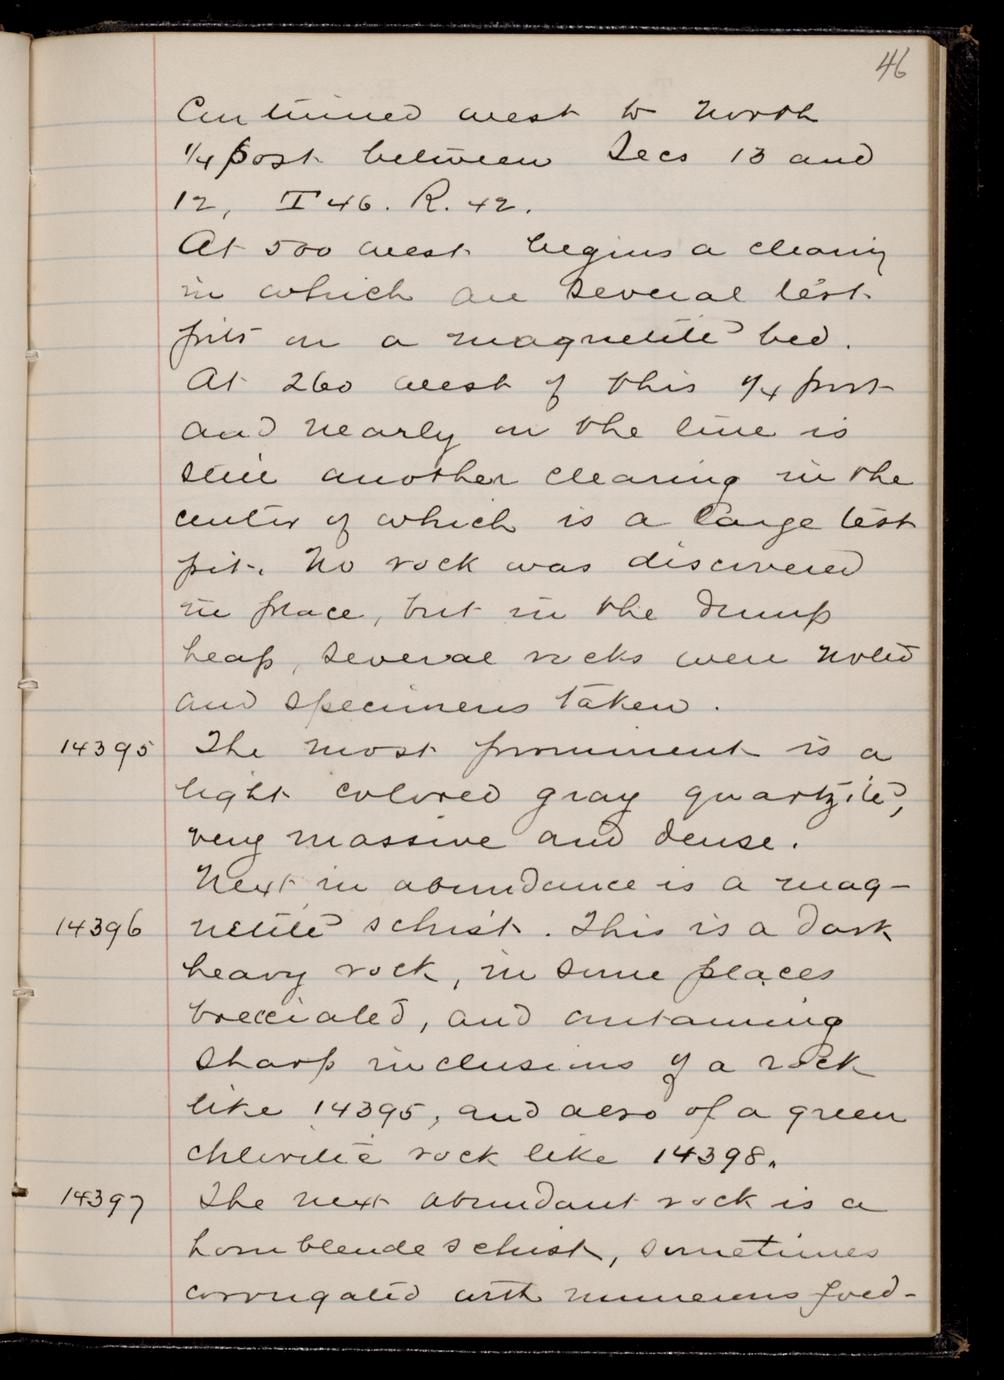 46
Continued west to North
1/4 post between Secs 13 and
12, T 46. R. 42.
At 500 west begins a clearing
in which are several test
pits on a magnetite bed.
At 260 west of this 1/4 post
and nearly on the line is
still another clearing in the
center of which is a large test
pit. No rock was discovered
in place, but in the dump
heap, several rocks were noted
and specimens taken.
14395 The most prominent is a
light colored gray quartzite,
very massive and dense.
Next in abundance is a mag-
14396 netite schist. This is a dark
heavy rock, in some places
brecciated, and containing
sharp inclusions of a rock
like 14395, and also of a green
chloritic rock like 14398.
14397 The next abundant rock is a
hornblende schist, sometimes
corrugated with numerous fold-